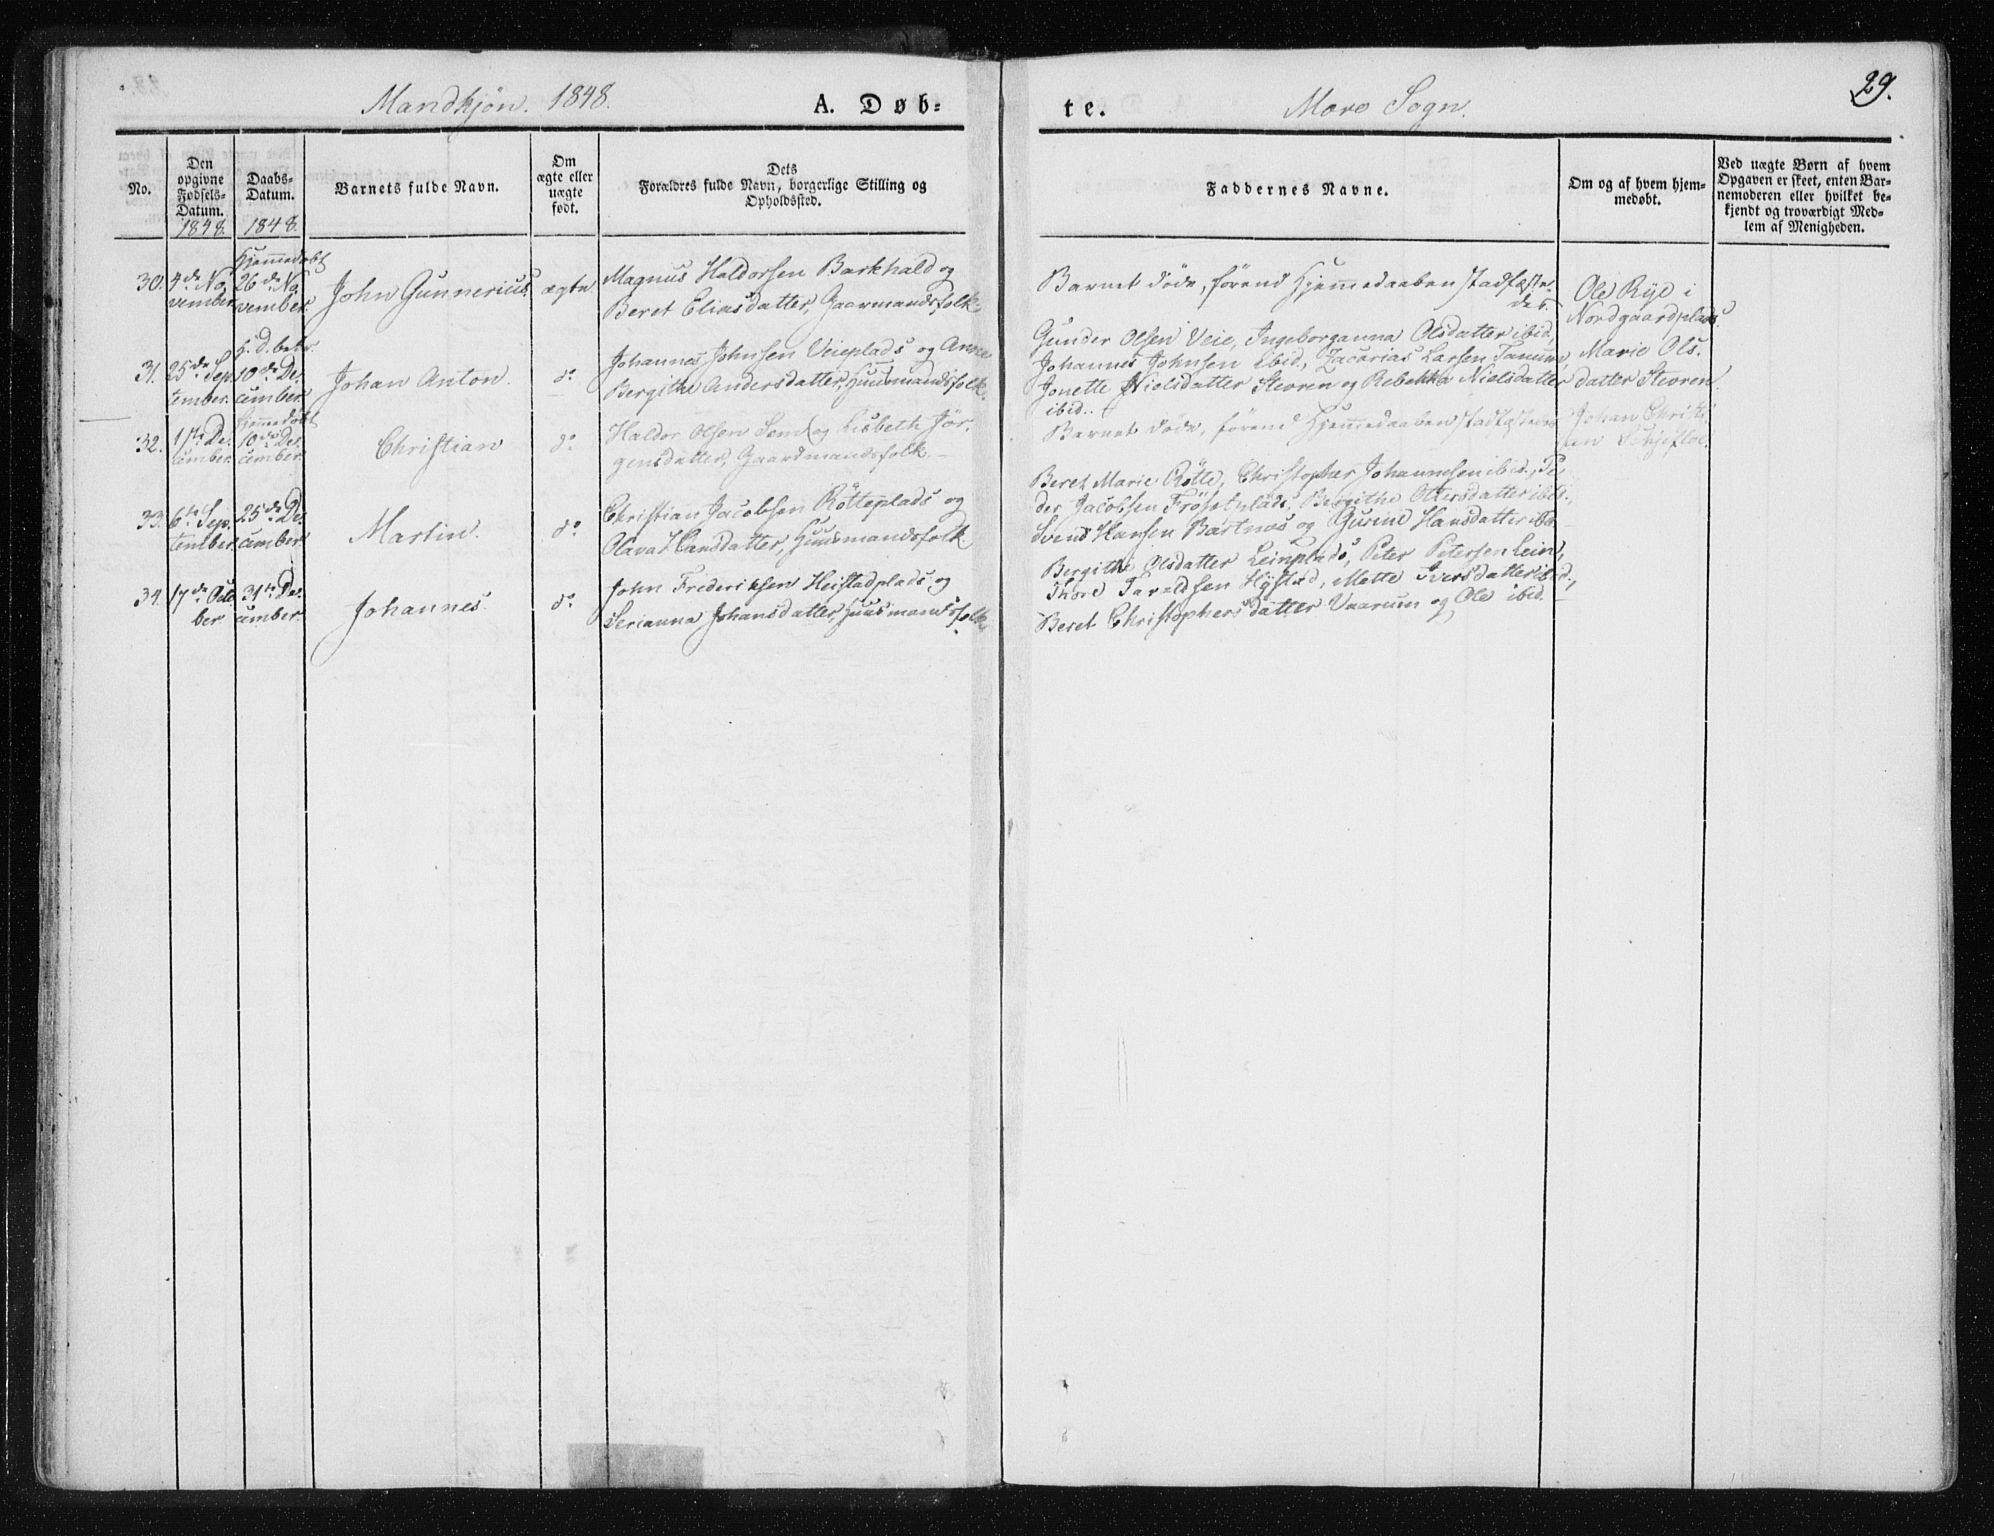 Mandkjön. 1848.
A. Døb=
te.
Mære Sogn.
29.
No.
Den
opgivne
Fødsels-
Datum.
1848.
Daabs-
Datum.
1848.
Barnets fulde Navn.
Om
ægte eller
uægte
født.
Dets
Forældres fulde Navn, borgerlige Stilling og
Opholdssted.
Faddernes Navne.
Om og af hvem hjem-
medøbt.
Ved uægte Børn af hvem
Opgaven er skeet, enten Bar-
nemoderen eller hvilket be-
kjendt og troværdigt Med-
lem af Menigheden.
30.
4de No,
vember
Hjemmedøbt
26de No,
vember.
John Gunnerius.
ægte
Magnus Haldorsen Barkhald og
Beret Eliasdatter, Gaarmandsfolk.
Barnet døde, førend Hjemmedaaben stadfæste-
des.
Ole Rye i
Nordgaardplads
31.
25de Sep
tember.
H. D. betr.
10de De,
cember.
Johan Anton.
do
Johannes Johnsen Veieplads og Anne
Bergithe Andersdatter, Huusmandsfolk.
Gunder Olsen Veie, Ingeborganna Olsdatter ibid,
Johannes Johnsen ibid., Zacarias Larsen Tanum,
Jonette Nielsdatter Stevren og Rebekka Nielsdatter
ibid.
Marie Ols.
datter Stevren.
32.
1ste De,
cember.
Hjemmedøbt
10de De,
cember.
Christian
do
Haldor Olsen Sem og Lisbeth Jör,
gensdatter, Gaardmandsfolk.
Barnet døde, førend Hjemmedaaben stadfæstedes
Johan Christi
an Schjefloe.
33.
6te Sep.
tember.
25de De,
cember
Martin.
do
Christian Jacobsen Rötteplads og
Olava Hansdatter, Huusmandsfolk
Beret Marie Røtte, Christopher Johannesen ibid., Pe,
der Jacobsen Frösetplads, Bergithe Ottersdatter ibid.,
Svend Hansen Bartnæs og Gurine Hansdatter ibid
34.
17de Octo
ber
31te De,
cember.
Johannes.
do
John Frederiksen Heistadplads og
Serianna Johansdatter, Huusmandsfolk
Bergithe Olsdatter Leinplads, Peter Petersen Lein,
Thore Taraldsen Hystad, Mette Iversdatter ibid.,
Beret Christophersdatter Vaarum og Ole ibid.